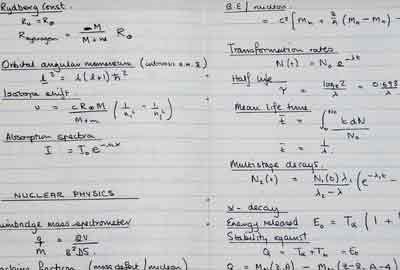 Rydberg Const.
R₀ = R∞
R hydrogen = M / M+m R∞
Orbital angular momentum
l² = l(l+1)ħ²
Isotope shift
ν = cR∞M / M+m (1/n₁² - 1/n₂²)
Absorption spectra
I = I₀e
NUCLEAR PHYSICS
mass spectrometer
q/M = 2V / B²DS
fraction (mass defect / nucleon)
B.E / nucleon
= c² [Mn + Z/A (MH - Mn) -
Transformation rates
N(t) = N₀ e^-λt
Half life
τ = loge2 / λ = 0.693 / λ
Mean life time
t̄ = ∫ t dN / N₀
t̄ = 1/λ
Multistage decays.
N₂(t) = N₁(0) λ₁ / λ₂ - λ₁ (e^-λ₁t -
α - decay
Energy released E₀ = Tα (1 +
Stability against
Q = Tα + Tb = E₀
Q = (Z, A) - (Z-2, A-4)